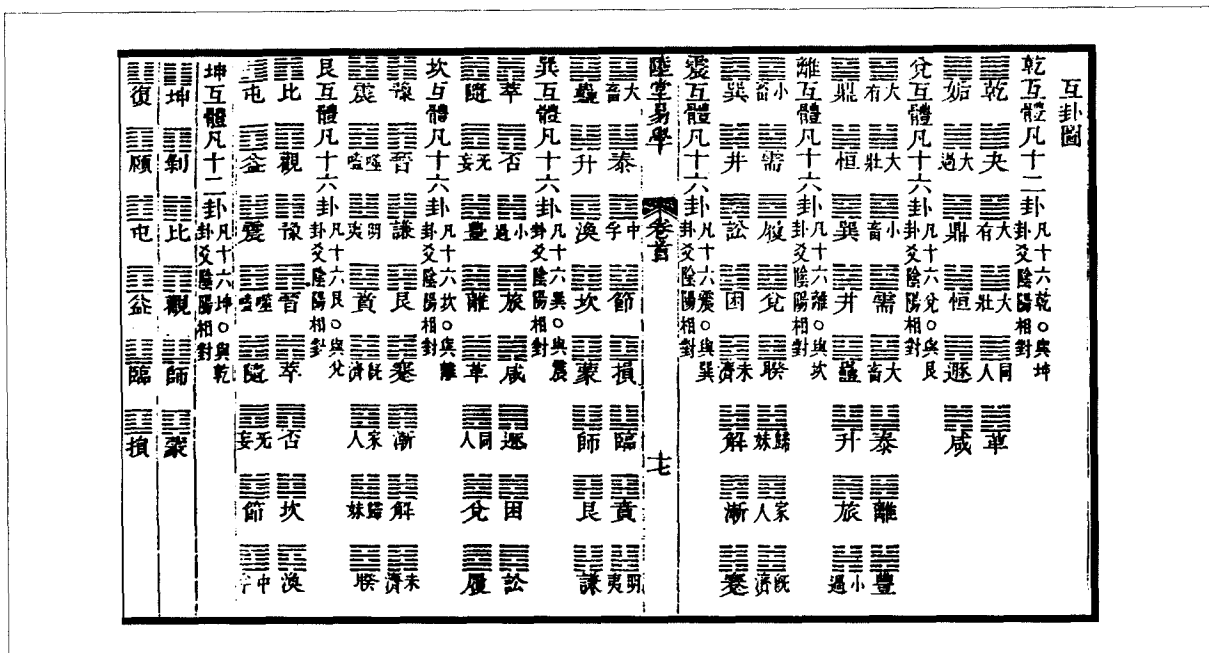 互卦圖
乾互體凡十二卦凡十六乾○與坤卦爻陰陽相對
乾 夬 大有 大壯 同人 革
姤 大過 鼎 恒 遯 咸
兌互體凡十六卦凡十六兌○與艮卦爻陰陽相對
大有 大壯 小畜 需 大畜 泰 離 豐
鼎 恒 巽 井 蠱 升 旅 小過
離互體凡十六卦凡十六離○與坎卦爻陰陽相對
小畜 需 履 兌 睽 歸妹 家人 既濟
巽 井 訟 困 未濟 解 漸 蹇
震互體凡十六卦凡十六震○與巽卦爻陰陽相對
陸堂易學 卷首 十七
大畜 泰 中孚 節 損 臨 賁 明夷
蠱 升 渙 坎 蒙 師 艮 謙
巽互體凡十六卦凡十六巽○與震卦爻陰陽相對
萃 否 小過 旅 咸 遯 困 訟
隨 无妄 豐 離 革 同人 兌 履
坎互體凡十六卦凡十六坎○與離卦爻陰陽相對
豫 晉 謙 艮 蹇 漸 解 未濟
震 噬嗑 明夷 賁 既濟 家人 歸妹 睽
艮互體凡十六卦凡十六艮○與兌卦爻陰陽相對
比 觀 豫 晉 萃 否 坎 渙
屯 益 震 噬嗑 隨 无妄 節 中孚
坤互體凡十二卦凡十六坤○與乾卦爻陰陽相對
坤 剝 比 觀 師 蒙
復 頤 屯 益 臨 損